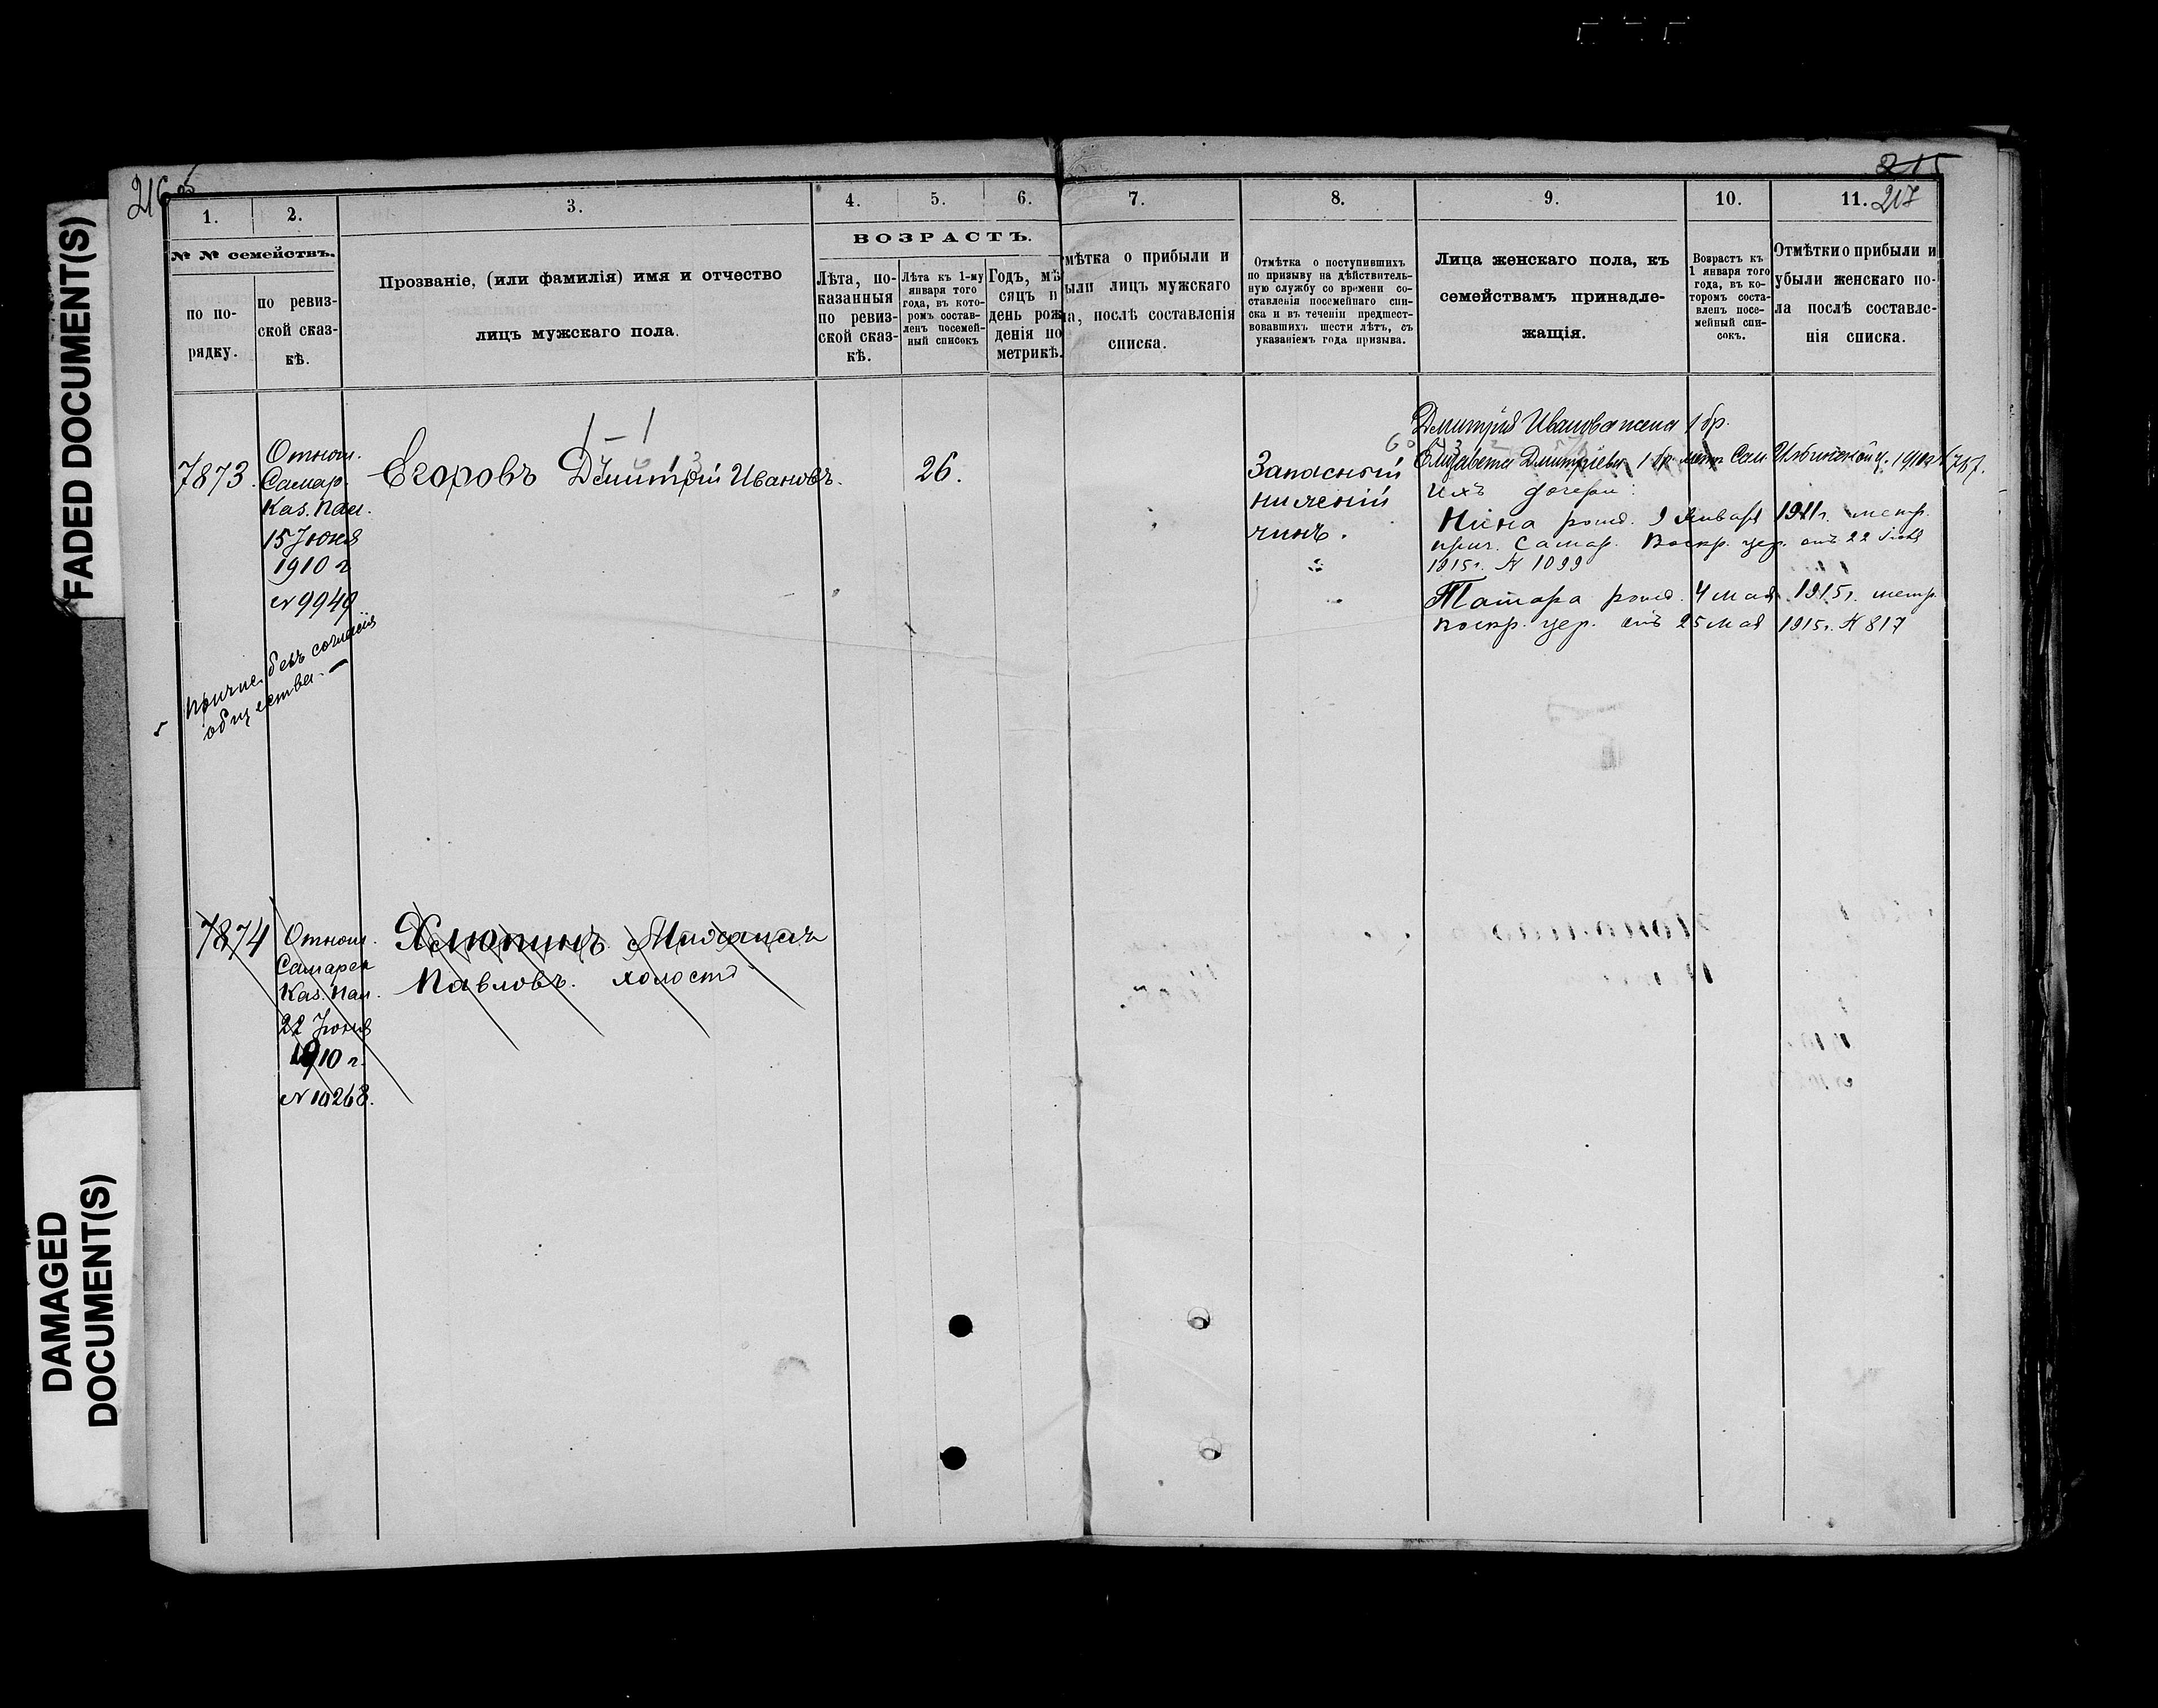 FADED DOCUMENT(S)
DAMAGED
DOCUMENT(S)
216 об
215
217
1.
2.
3.
4.
5.
6.
7.
8.
9.
10.
11.
№ № семействъ.
по по-
рядку.
по ревиз-
ской сказ-
кѣ.
Прозваніе, (или фамилія) имя и отчество
лицъ мужскаго пола.
ВОЗРАСТЪ.
Лѣта, по-
казанныя
по ревиз-
ской сказ-
кѣ.
Лѣта къ 1-му
января того
года, въ кото-
ромъ состав-
ленъ посемей-
ный списокъ
Годъ, мѣ
сяцъ и
день рож
денія по
метрикѣ.
мѣтка о прибыли и
ыли лицъ мужскаго
ла, послѣ составленія
списка.
Отмѣтка о поступившихъ
по призыву на дѣйствитель-
ную службу со времени со-
ставленія посемейнаго спи-
ска и въ теченіи предшест-
вовавшихъ шести лѣтъ, съ
указаніемъ года призыва.
Лица женскаго пола, къ
семействамъ принадле-
жащія.
Возрастъ къ
1 января того
года, въ ко-
торомъ соста-
вленъ посе-
мейный спи-
сокъ.
Отмѣтки о прибыли и
убыли женскаго по-
ла послѣ составле-
нія списка.
7873.
Отнош.
Самар.
Каз. пал.
15 Іюня
1910 г
№ 9949
причис. безъ согласія
общества.
1 – 1
Егоровъ Дмитрій Ивановъ.
26.
Запасный
нижній
чинъ.
Дмитрія Иванова жена 1 бр.
Елизавета Дмитріева 1 бр. метр. Сам.
Ихъ дочери:
Нина рожд. 9 января 1911 г. метр.
прич. Самар. Воскр. цер. отъ 22 Іюня
1915 г. № 1099
Тамара рожд. 4 мая 1915 г. метр.
Воскр. цер. отъ 25 мая 1915 г. № 817
7874
Отнош.
Самарск
Каз. пал.
22 Іюня
1910 г.
№ 10268.
Хлюпинъ Михаилъ
Павловъ. холостъ